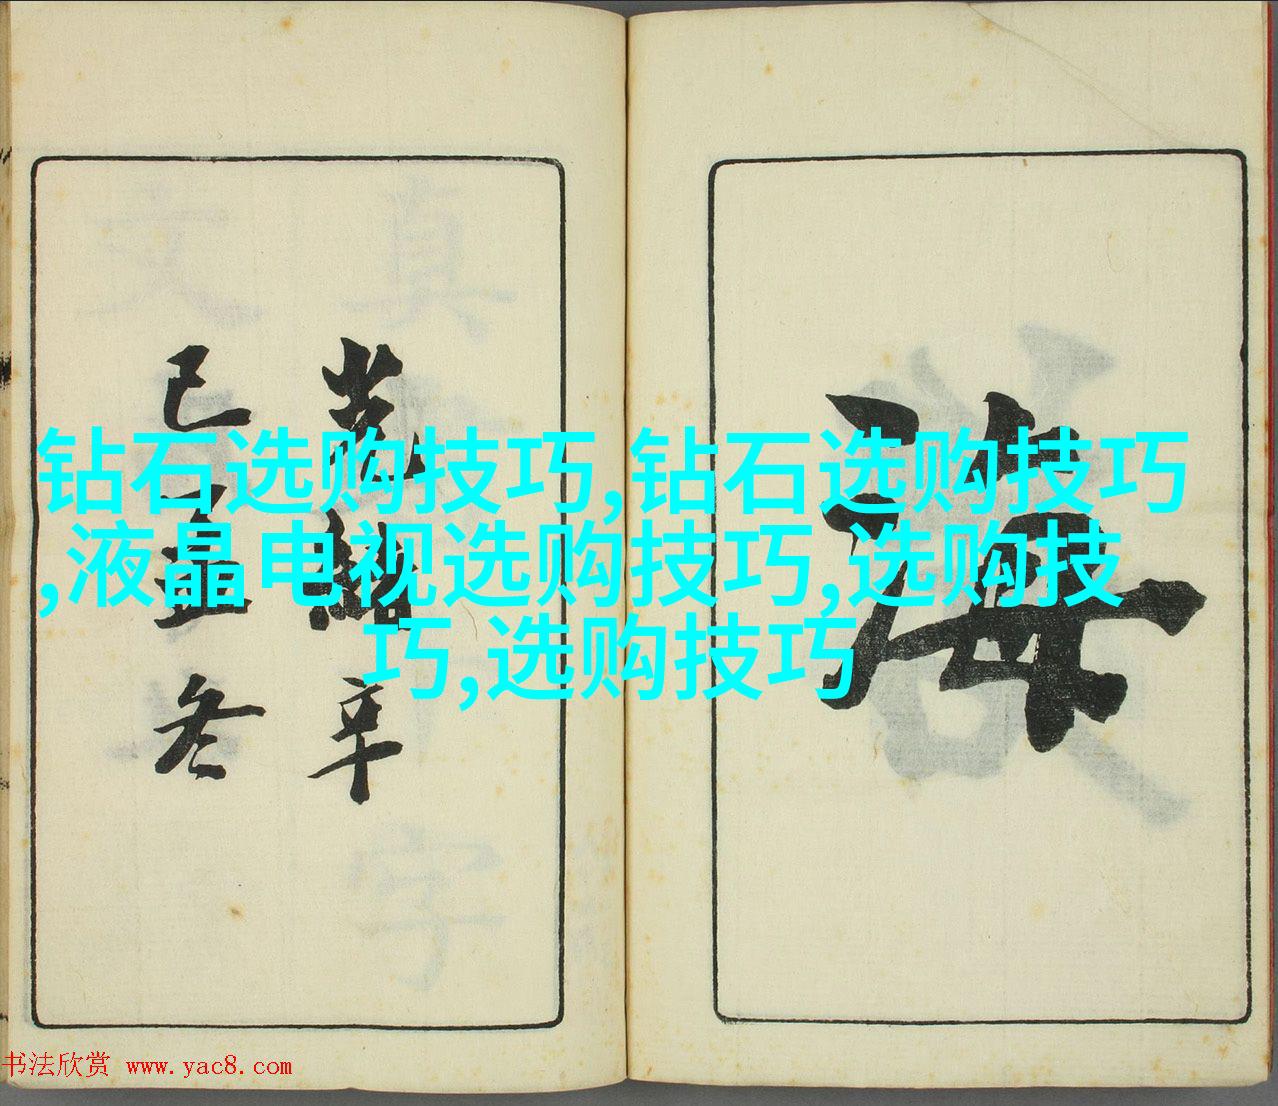 海
光緒辛
巳孟冬
钻石选购技巧,钻石选购技巧
,液晶电视选购技巧,选购技
巧,选购技巧
书法欣赏 www.yac8.com